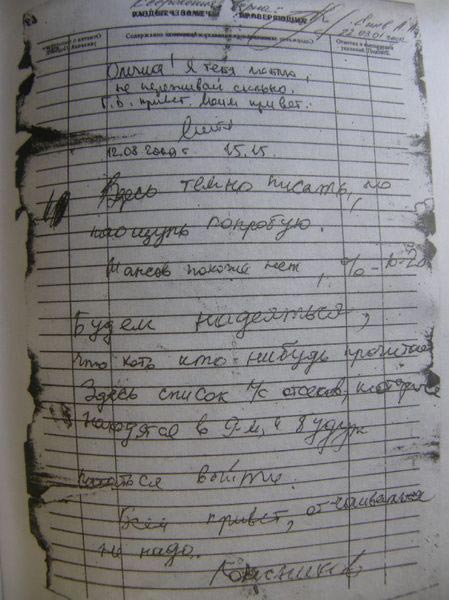 верна
ПРОВЕРЯЮЩИХ
Содержание
Олечка! Я тебя люблю,
не переживай сильно.
Г.В. привет. Моим привет.
12.08 2000 г 15.15.
Здесь темно писать, но
наощупь попробую.
Шансов похоже нет, % - 10-20
Будем надеяться,
что хоть кто нибудь прочитает
Здесь список л/с отсеков, которые
находятся в 9-м, и будут
пытаться выйти.
Всем привет, отчаиваться
не надо.
Колесников